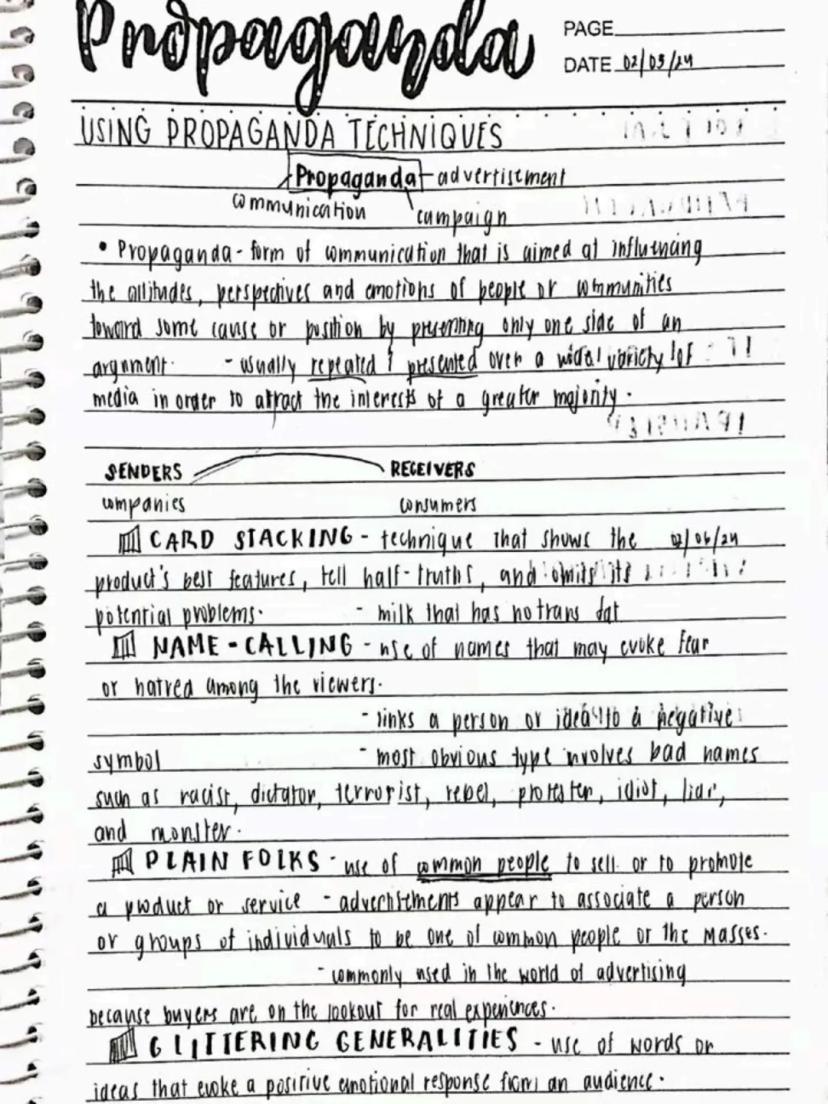 Propaganda
PAGE
DATE 02/05/24
USING PROPAGANDA TECHNIQUES
Propaganda - advertisement
communication
campaign
• Propaganda - form of communication that is aimed at influencing
the attitudes, perspectives and emotions of people or communities
toward some cause or position by presenting only one side of an
argument. - usually repeated & presented over a wide variety of
media in order to attract the interests of a greater majority.
SENDERS RECEIVERS
companies consumers
CARD STACKING - technique that shows the 02/06/24
product's best features, tell half-truths, and omits its
potential problems. - milk that has no trans dat
NAME-CALLING - use of names that may evoke fear
or hatred among the viewers.
- links a person or idea to a negative
symbol - most obvious type involves bad names
such as racist, dictator, terrorist, rebel, protester, idiot, liar,
and monster.
PLAIN FOLKS - use of common people to sell or to promote
a product or service - advertisements appear to associate a person
or groups of individuals to be one of common people or the masses.
- commonly used in the world of advertising
because buyers are on the lookout for real experiences.
GLITTERING GENERALITIES - use of words or
ideas that evoke a positive emotional response from an audience.